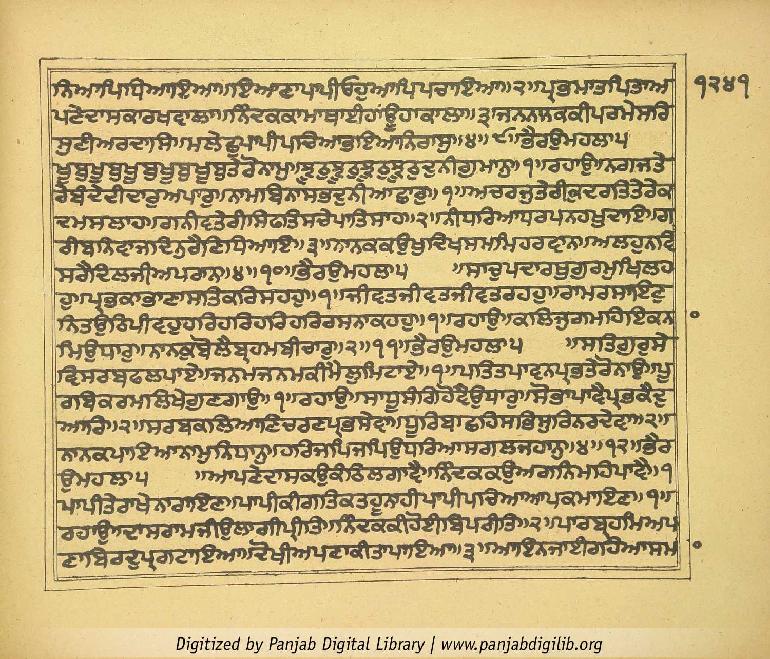 ਨਿਆਪਿਧਿਆਇਆ॥ਇਆਣਾਪਾਪੀਓਹੁਆਪਿਪਚਾਇਆ॥੨॥ਪ੍ਰਭਮਾਤਪਿਤਾਅ ੧੨੪੧
ਪਣੇਦਾਸਕਾਰਖਵਾਲਾ॥ਨਿੰਦਕਕਾਮਾਥਾਈਹਾਂਊਹਾਕਾਲਾ॥੩॥ਜਨਨਾਨਕਕੀਪਰਮੇਸਰਿ
ਸੁਣੀਅਰਦਾਸਿ॥ਮਲੇਛੁਪਾਪੀਪਚਿਆਭਇਆਨਿਰਾਸੁ॥੪॥੯॥ਭੈਰਉਮਹਲਾ੫
ਖੂਬੁਖੂਬੁਖੂਬੁਖੂਬੁਖੂਬੁਤੇਰੋਨਾਮੁ॥ਝੂਠੁਝੂਠੁਝੂਠੁਝੂਠੁਦੁਨੀਗੁਮਾਨੁ॥੧॥ਰਹਾਉ॥ਨਗਜਤੇ
ਰੇਬੰਦੇਦੀਦਾਰੁਅਪਾਰੁ॥ਨਾਮਬਿਨਾਸਭਦੁਨੀਆਛਾਰੁ॥੧॥ਅਚਰਜੁਤੇਰੀਕੁਦਰਤਿਤੇਰੇਕ
ਦਮਸਲਾਹ॥ਗਨੀਵਤੇਰੀਸਿਫਤਿਸਚੇਪਾਤਿਸਾਹ॥੨॥ਨੀਧਰਿਆਧਰਪਨਹਖੁਦਾਇ॥ਗ
ਰੀਬਨਿਵਾਜੁਦਿਨੁਰੈਣਿਧਿਆਇ॥੩॥ਨਾਨਕਕਉਖੁਦਿਖਸਮਮਿਹਰਵਾਨ॥ਅਲਹੁਨਵਿ
ਸਰੈਦਿਲਜੀਅਪਰਾਨ॥੪॥੧੦॥ਭੈਰਉਮਹਲਾ੫ ॥ਸਾਚਪਦਾਰਥੁਗੁਰਮੁਖਿਲਹ
ਹੁ॥ਪ੍ਰਭਕਾਭਾਣਾਸਤਿਕਰਿਸਹਹੁ॥੧॥ਜੀਵਤਜੀਵਤਜੀਵਤਰਹਹੁ॥ਰਾਮਰਸਾਇਣੁ
ਨਿਤਉਠਿਪੀਵਹੁਹਰਿਹਰਿਹਰਿਹਰਿਰਸਨਾਕਹਹੁ॥੧॥ਰਹਾਉ॥ਕਲਿਜੁਗਮਹਿਇਕਨਾ
ਮਿਉਧਾਰੁ॥ਨਾਨਕੁਬੋਲੈਬ੍ਰਹਮਬੀਚਾਰੁ॥੨॥੧੧॥ਭੈਰਉਮਹਲਾ੫ ॥ਸਤਿਗੁਰੁਸੇ
ਵਿਸਰਬਫਲਪਾਏ॥ਜਨਮਜਨਮਕੀਮੈਲੁਮਿਟਾਏ॥੧॥ਪਤਿਤਪਾਵਨਪ੍ਰਭਤੇਰੋਨਾਉ॥ਪੂ
ਰਬਿਕਰਮਲਿਖੇਗੁਣਗਾਉ॥੧॥ਰਹਾਉ॥ਸਾਧੂਸੰਗਿਹੋਵੈਉਧਾਰੁ॥ਸੋਭਾਪਾਵੈਪ੍ਰਭਕੈਦੁ
ਆਰਿ॥੨॥ਸਰਬਕਲਿਆਣਚਰਣਪ੍ਰਭਸੇਵਾ॥ਧੂਰਿਬਾਛਹਿਸਭਿਸੁਰਿਨਰਦੇਵਾ॥੩॥
ਨਾਨਕਪਾਇਆਨਾਮੁਨਿਧਾਨੁ॥ਹਰਿਜਪਿਜਪਿਉਧਰਿਆਸਗਲਜਹਾਨੁ॥੪॥੧੨॥ਭੈਰ
ਉਮਹਲਾ੫ ॥ਆਪਣੇਦਾਸਕਉਕੰਠਿਲਗਾਵੈ॥ਨਿੰਦਕਕਉਅਗਨਿਮਹਿਪਾਵੈ॥੧
ਪਾਪੀਤੇਰਾਖੇਨਾਰਾਇਣ॥ਪਾਪੀਕੀਗਤਿਕਤਹੂਨਾਹੀਪਾਪੀਪਚਿਆਆਪਕਮਾਇਣ॥੧॥
ਰਹਾਉ॥ਦਾਸਰਾਮਜੀਉਲਾਗੀਪ੍ਰੀਤਿ॥ਨਿੰਦਕਕੀਹੋਈਬਿਪਰੀਤਿ॥੨॥ਪਾਰਬ੍ਰਹਮਿਅਪ
ਣਾਬਿਰਦੁਪ੍ਰਗਟਾਇਆ॥ਦੋਖੀਅਪਣਾਕੀਤਾਪਾਇਆ॥੩॥ਆਇਨਜਾਈਰਹਿਆਸਮਾ
Digitized by Panjab Digital Library | www.panjabdigilib.org